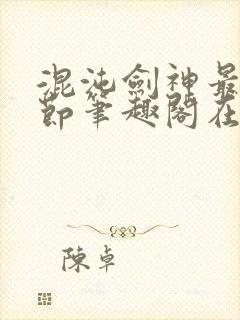 混沌劍神最
節筆趣閣在
陳卓